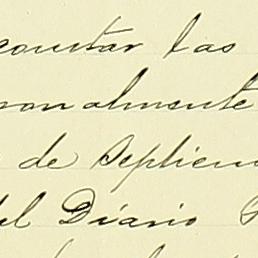 constar las
onalmente
de Septiem
del Diario